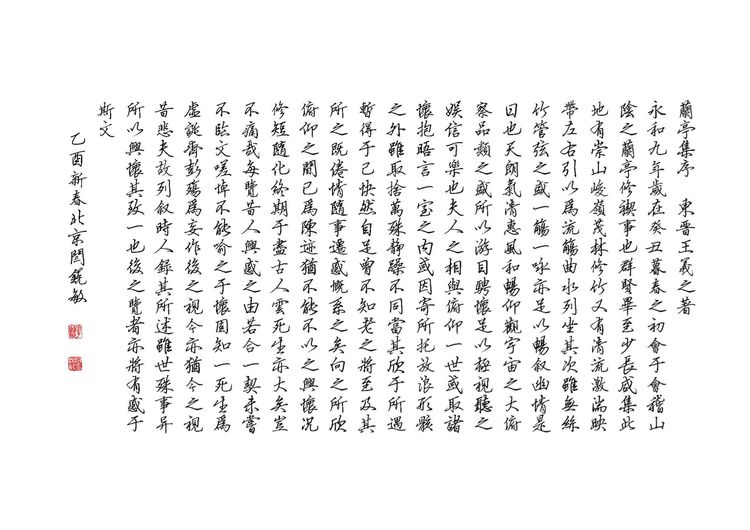 蘭亭集序 東晋王羲之著
永和九年歲在癸丑暮春之初會于會稽山
陰之蘭亭修禊事也群賢畢至少長咸集此
地有崇山峻嶺茂林修竹又有清流激湍映
帶左右引以爲流觴曲水列坐其次雖無絲
竹管弦之盛一觴一咏亦足以暢叙幽情是
日也天朗氣清惠風和暢仰觀宇宙之大俯
察品類之盛所以游目騁懷足以極視聽之
娱信可樂也夫人之相與俯仰一世或取諸
懷抱晤言一室之内或因寄所托放浪形骸
之外雖取捨萬殊静躁不同當其欣于所遇
暫得于己快然自足曾不知老之將至及其
所之既倦情隨事遷感慨系之矣向之所欣
俯仰之間已爲陳迹猶不能不以之興懷况
修短隨化終期于盡古人雲死生亦大矣豈
不痛哉每覽昔人興感之由若合一契未嘗
不臨文嗟悼不能喻之于懷固知一死生爲
虚誕齊彭殤爲妄作後之視今亦猶今之視
昔悲夫故列叙時人録其所述雖世殊事异
所以興懷其致一也後之覽者亦將有感于
斯文
乙酉新春北京閻銳敏